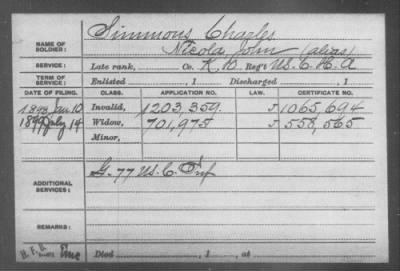 Simmons Charles
NAME OF SOLDIER: Nicola, John (alias)
SERVICE: Late rank, Co. K, 10 Reg't U.S.C.H.A
TERM OF SERVICE: Enlisted , 1 Discharged , 1
DATE OF FILING. CLASS. APPLICATION NO. LAW. CERTIFICATE NO.
1893 Jan. 10 Invalid, 1203,359. J 1065,694
1899 July 14 Widow, 701,975 J 558,565
Minor,
ADDITIONAL SERVICES: G. 77 U.S.C. Inf
REMARKS:
Died , 1 , at